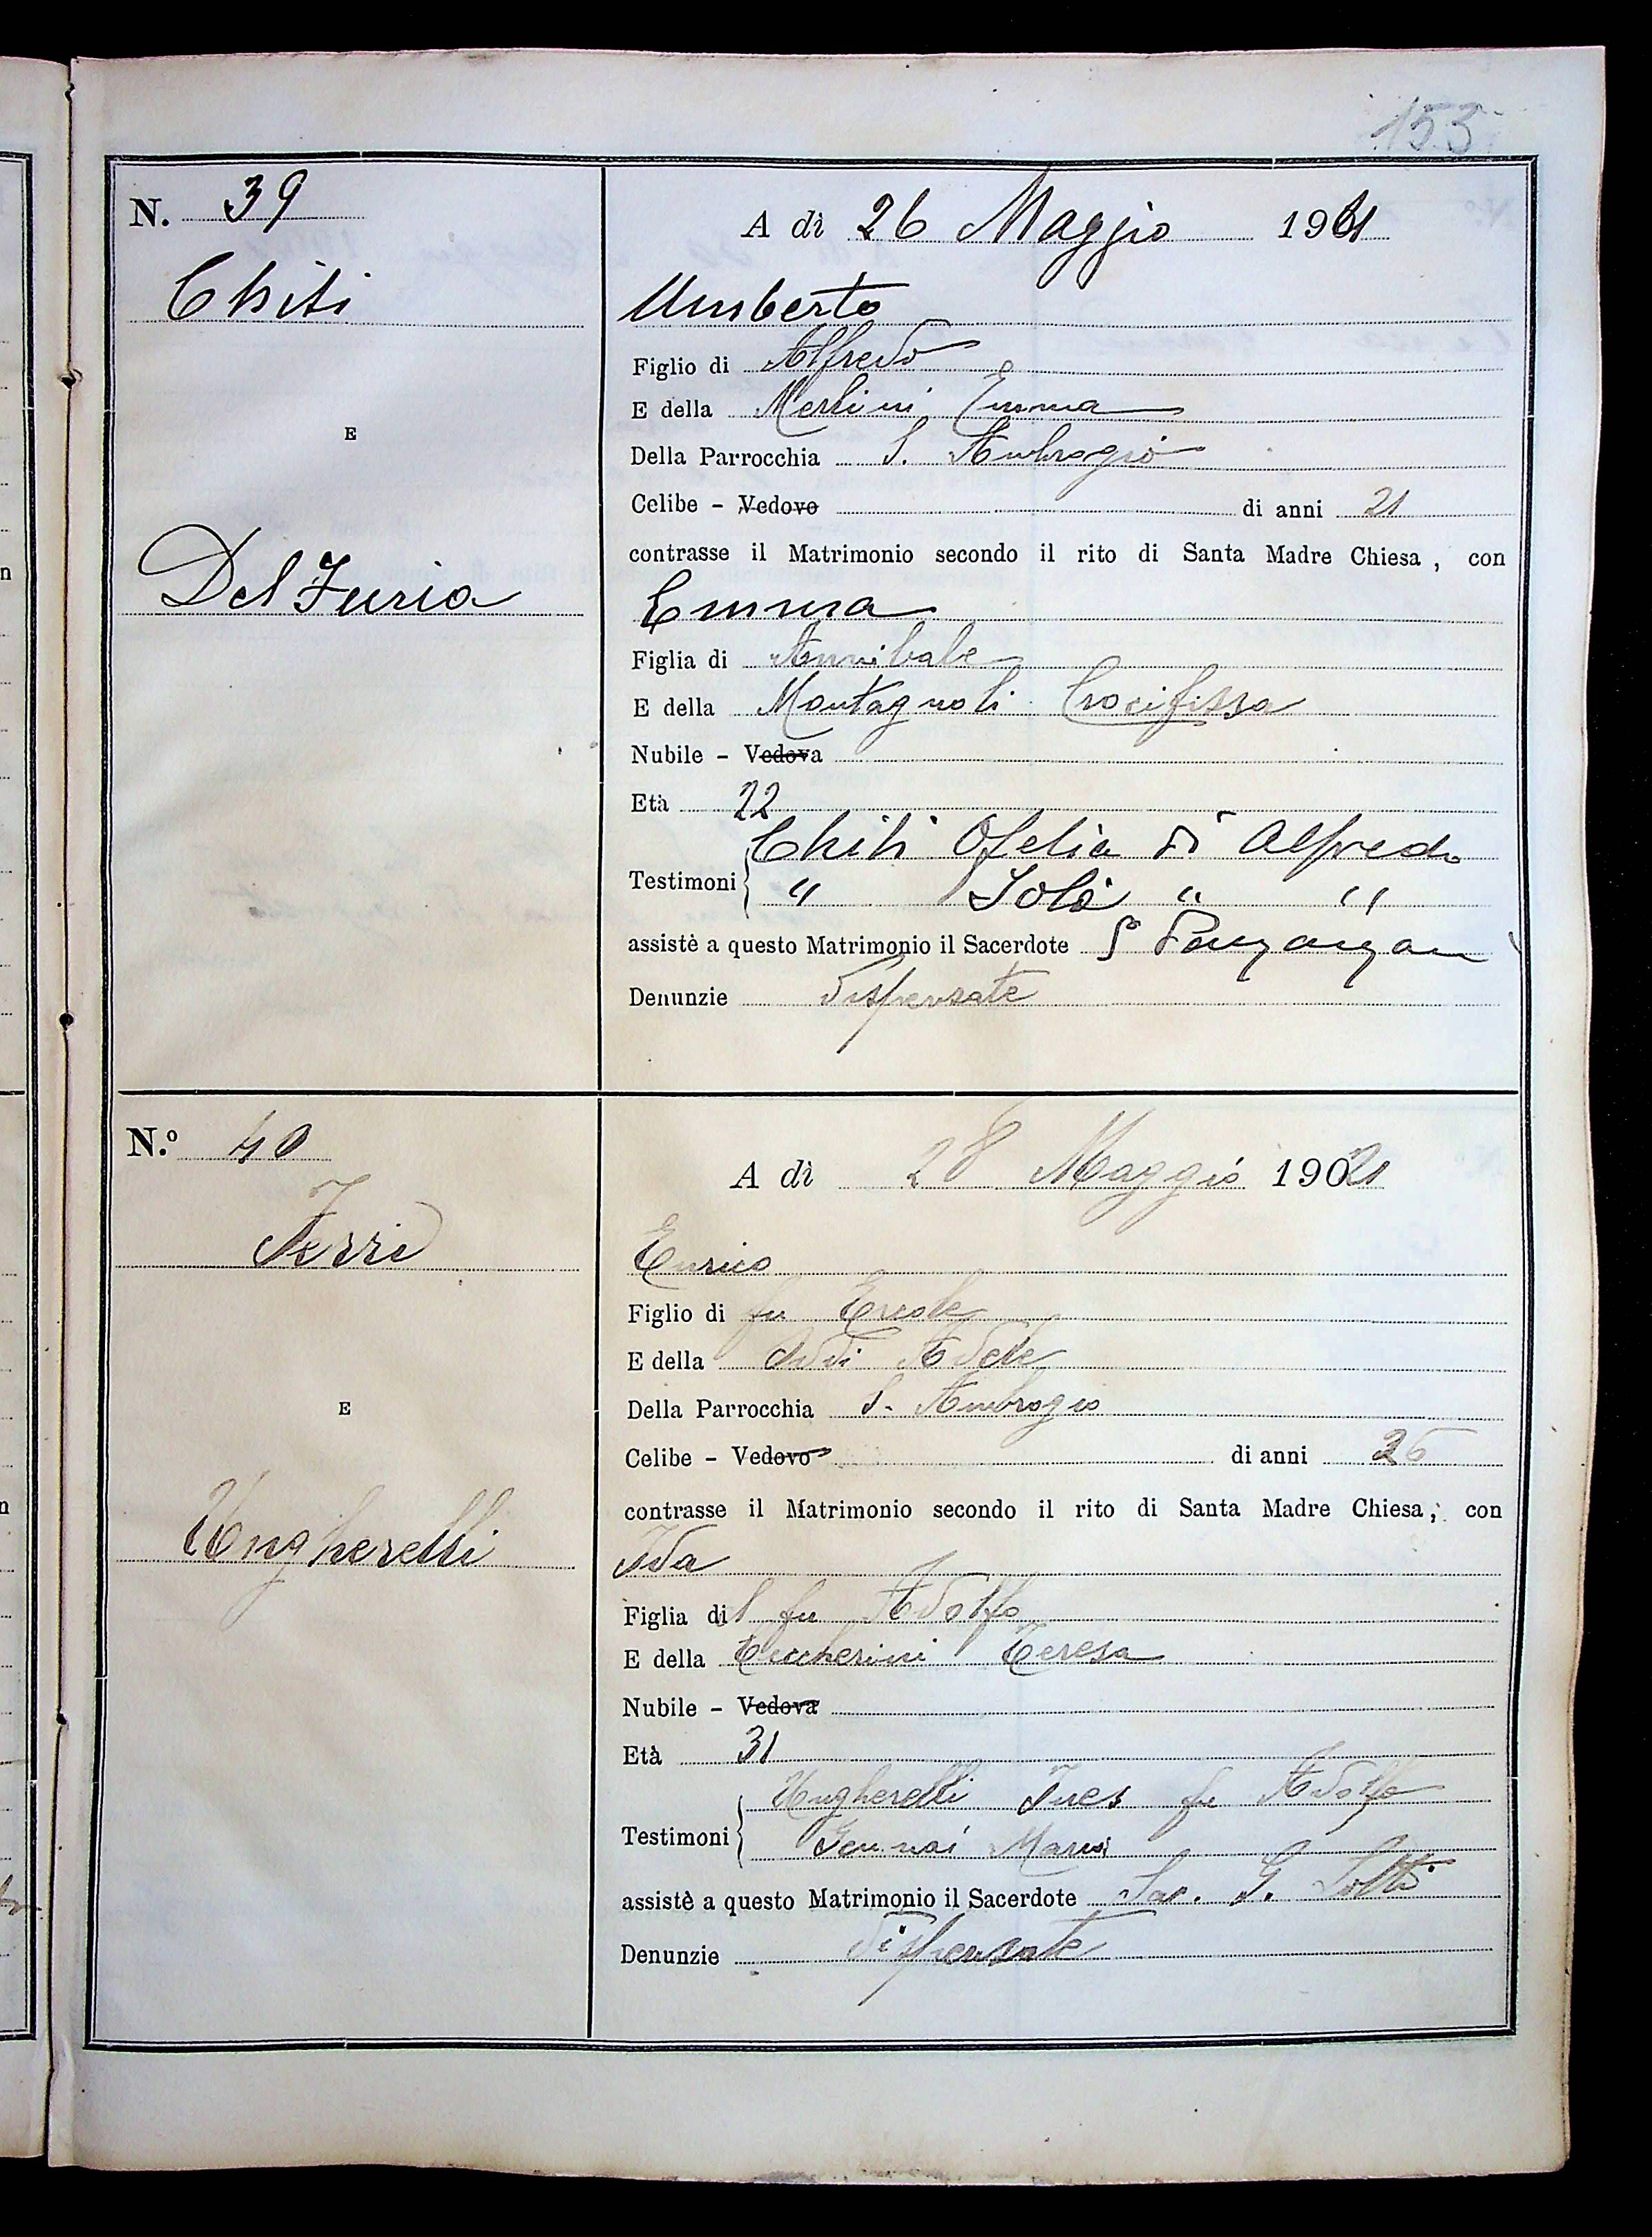 153
N. 39
A dì 26 Maggio 1921
Chiti
Umberto
Figlio di Alfredo
E della Merlini Emma
E
Della Parrocchia S. Ambrogio
Celibe - Vedovo di anni 21
contrasse il Matrimonio secondo il rito di Santa Madre Chiesa, con
Del Furia
Emma
Figlia di Annibale
E della Montagnoli Crocifissa
Nubile - Vedova
Età 22
Chiti Ofelia di Alfredo
Testimoni " Iole " "
assistè a questo Matrimonio il Sacerdote
Denunzie dispensate
N.º 40
A dì 28 Maggio 1921
Ferri
Enrico
Figlio di fu Ercole
E della Oddi Adele
E
Della Parrocchia S. Ambrogio
Celibe - Vedovo di anni 26
contrasse il Matrimonio secondo il rito di Santa Madre Chiesa, con
Ungherelli
Ida
Figlia del fu Adolfo
E della Ceccherini Teresa
Nubile - Vedova
Età 31
Ungherelli Ines fu Adolfo
Testimoni Gennai Maria
assistè a questo Matrimonio il Sacerdote Sac. G.
Denunzie dispensate